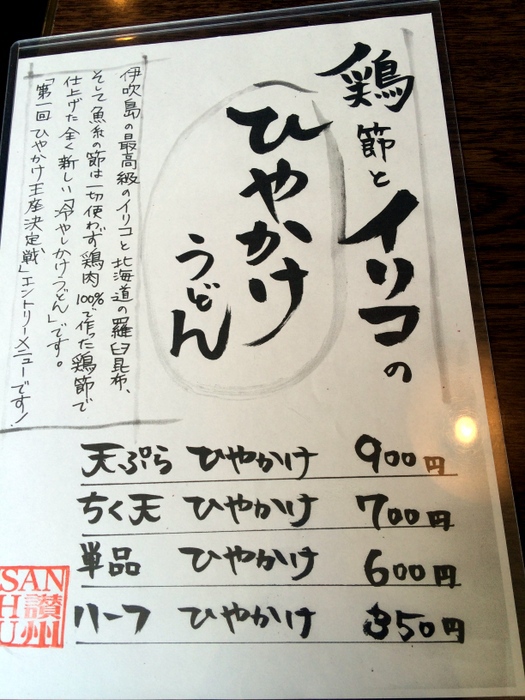 鶏節とイリコの
ひやかけ
うどん
伊吹島の最高級のイリコと北海道の羅臼昆布、
そして魚系の節は一切使わず鶏肉100%で作った鶏節で
仕上げた全く新しい「冷やしかけうどん」です。
「第一回ひやかけ王座決定戦」エントリーメニューです！
天ぷら ひやかけ 900円
ちく天 ひやかけ 700円
単品 ひやかけ 600円
ハーフ ひやかけ 350円
SAN
H讃
U州